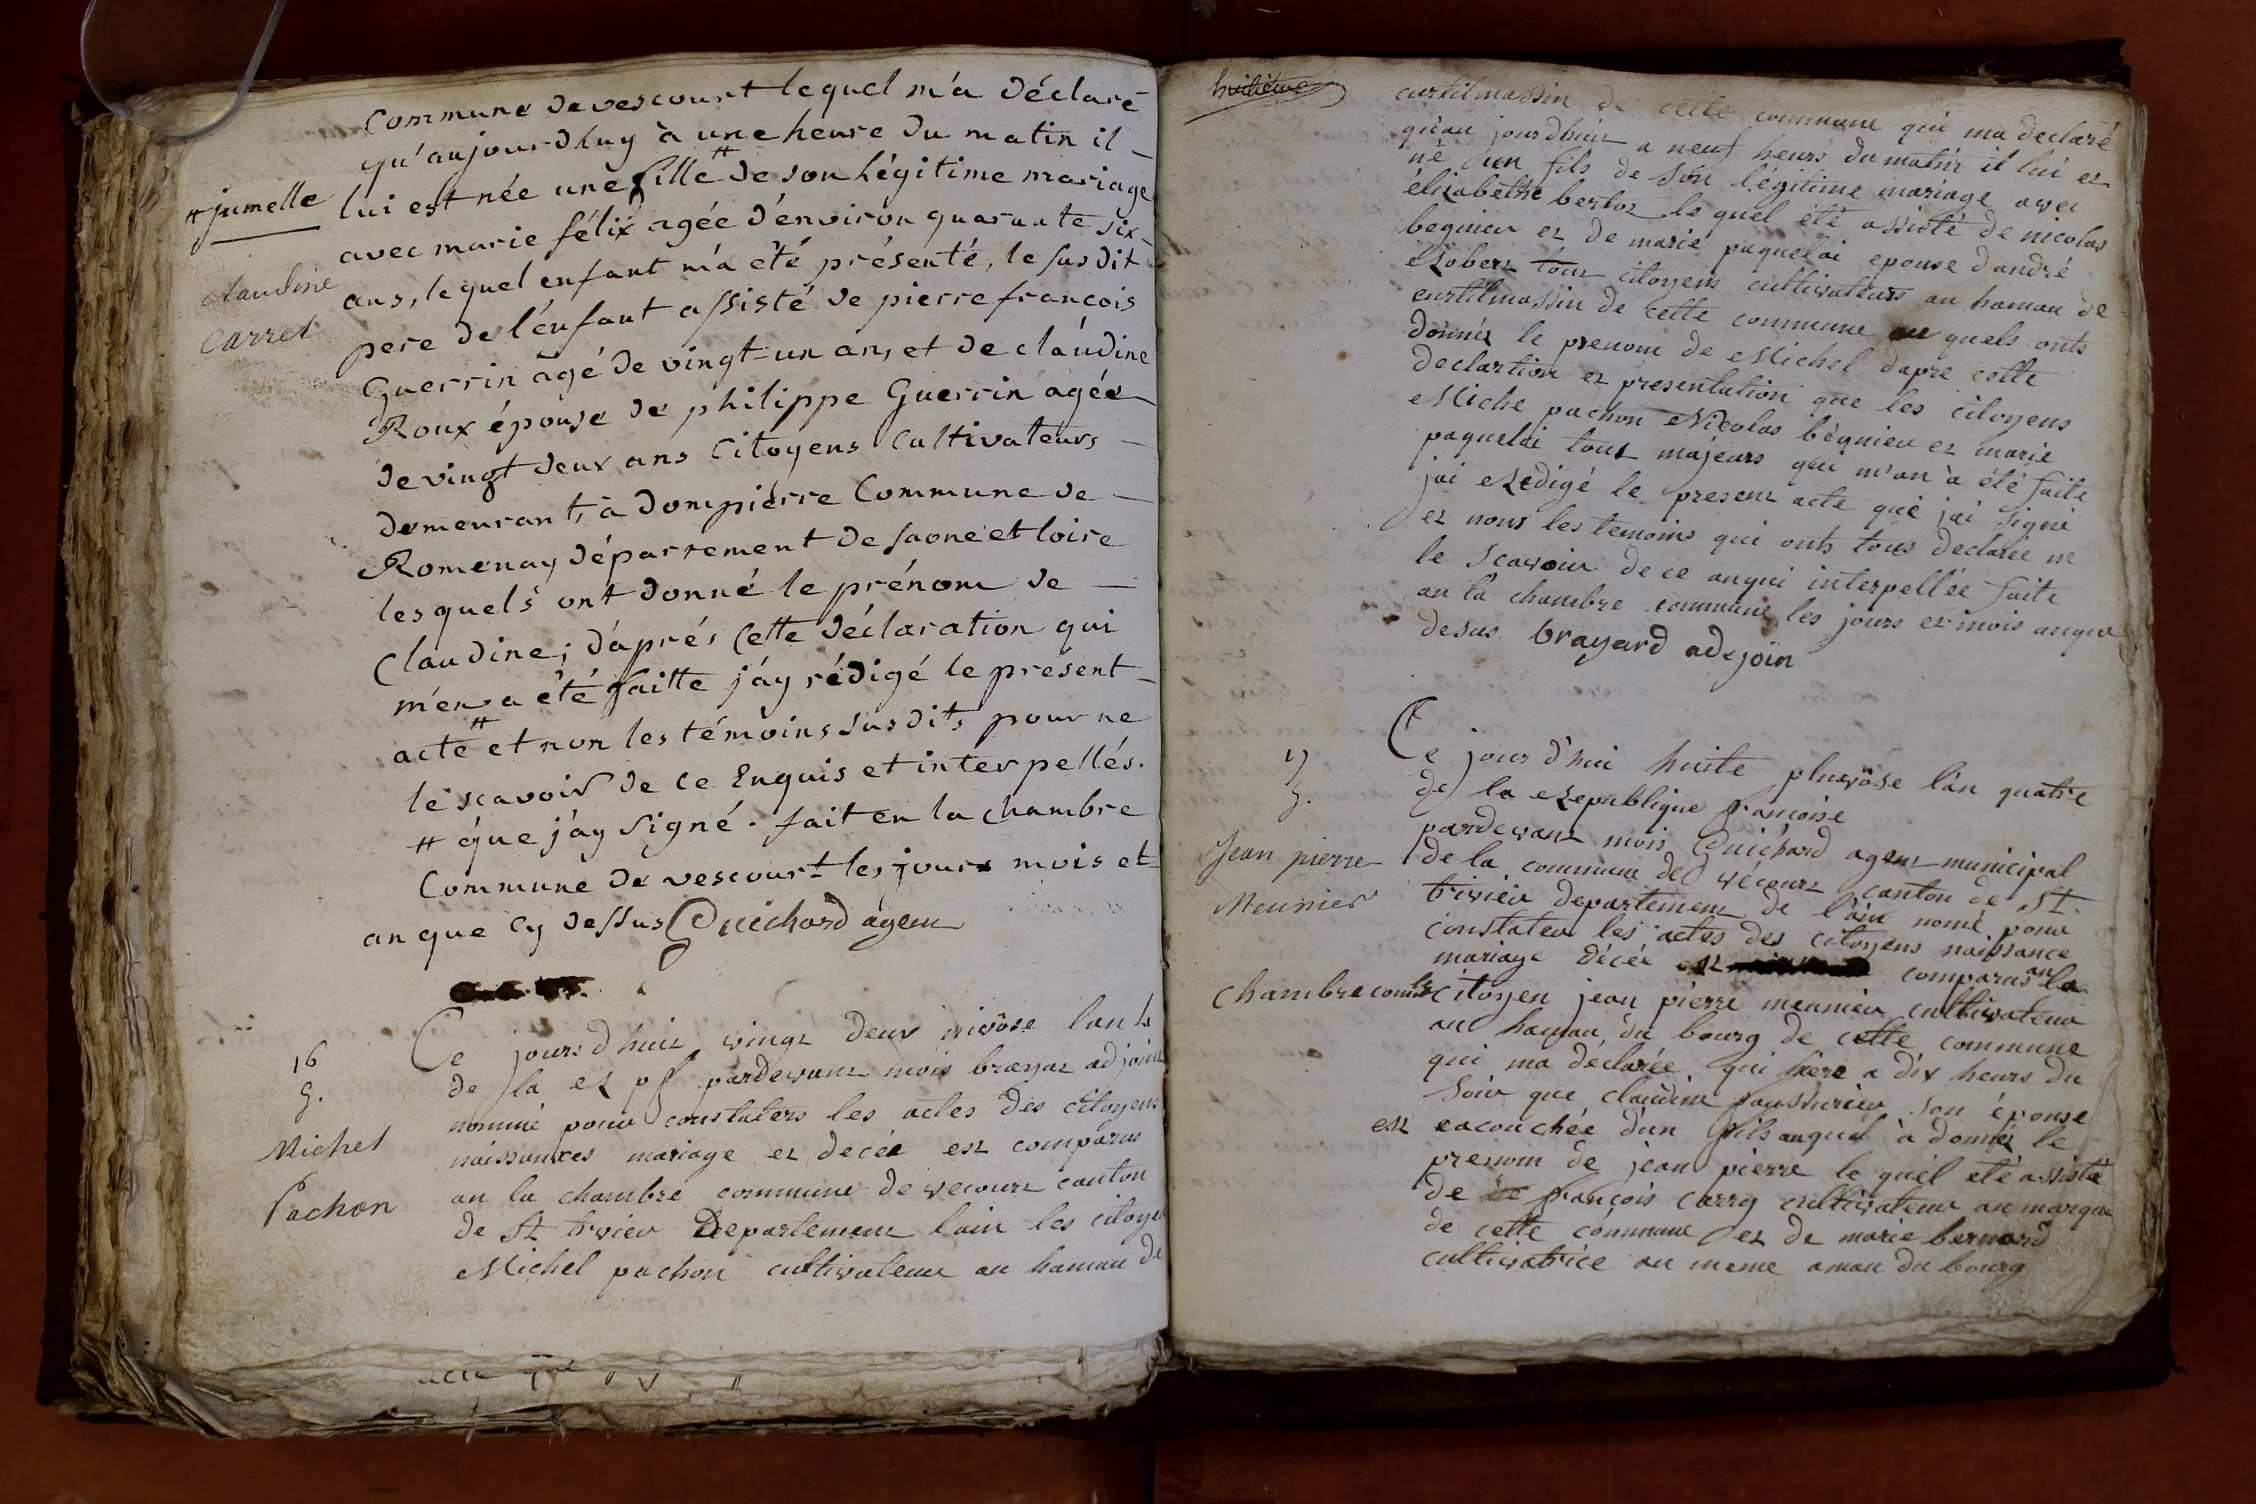 commune de vescourt lequel m'a déclaré
qu'aujourdhuy à une heure du matin il
# jumelle
lui est née une fille # de son légitime mariage
avec marie félix agée d'environ quarante six
claudine
ans, lequel enfant m'a été présenté, le susdit
carret
pere de l'enfant assisté de pierre françois
Guerrin âgé de vingt-un ans, et de claudine
Roux épouse de philippe Guerrin agée
de vingt deux ans citoyens cultivateurs
demeurant, à dompierre Commune de
Romenay département de saone et loire
lesquels ont donné le prénom de
Claudine; d'aprés cette déclaration qui
m'en a été faitte j'ay rédigé le présent
acte # et non les témoins susdits pour ne
le scavoir de ce Enquis et interpellés.
# que j'ay signé. fait en la chambre
Commune de vescourt les jours mois et
an que cy dessus Guichard agent
16
Ce jours dhuit vingt deux nivôse lan 4
de la et pardevant mois brayat adjoint
G.
nommé pour constaters les actes des citoyens
Michel
naissances mariage et decée est comparus
Pachon
an la chambre commune de vecourt canton
de St trivier Departement lain les citoyen
Michel pachon cultivateur au haman de
huitième
curtilmassin de cette commune qui ma declaré
qu'au jourdhuit a neuf heurs du matin il lui et
né un fils de son légitime mariage avec
élisabethe bertoz le quel été assisté de nicolas
begnieu et de marie paquelai epouse d'andré
Robert tout citoyens cultivateurs au haman de
curtilmassin de cette commune au quels onts
donnés le prenom de Michel dapre cette
declartion et presentation que les citoyens
Miche pachon Nicolas bégnieu et marie
paquelai tout majeurs qui m'an à été faite
jai Redigé le present acte que jai signé
et nous les temoins qui onts tous declarée ne
le scavoir de ce anqui interpellée faite
an la chambre commune les jours et mois anque
desus brayard adejoin
17
G.
Ce jour d'hui huite pluviôse l'an quatre
de la Republique françoise
pardevant mois Guichard agent municipal
Jean pierre
de la commune de vécourt canton de St.
Meunier
trivier departement de l'ain nomé pour
constater les actes des citoyens naissance
mariage décée et comparus an la
chambre comle citoyen jean pierre meunier cultivateur
au hamau du bourg de cette commune
qui ma déclarée qui hiere a dix heurs du
soir que claudine son épouse
et eacouchée d'un fils auquel à donnés le
prenom de jean pierre le quél eté assisté
de françois carry cultivateur au marque
de cette commune et de marie bernard
cultivatrice au meme aman du bourg